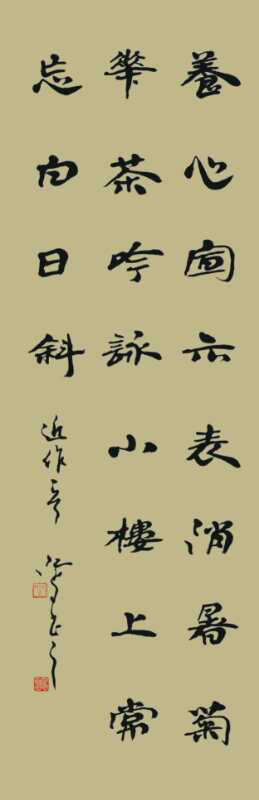 養心宣示表消暑菊
華茶吟詠小樓上常
忘白日斜
近作